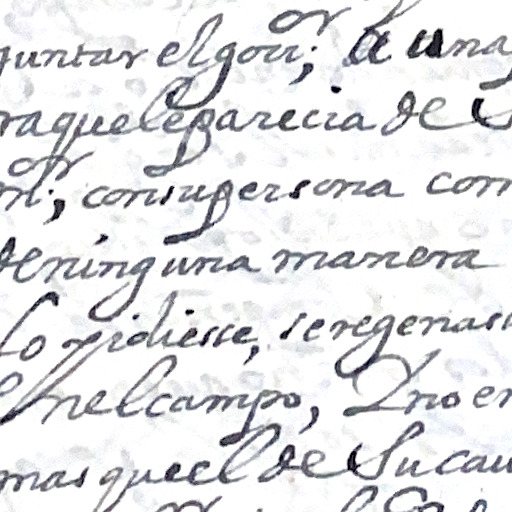 guntar el gou.or; a una
ra que le parecia de S
m.or; con su persona com
de ninguna manera
lo pidiesse, se negenas
En el campo, Q no en
mas que el de Su cau